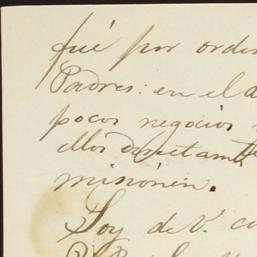 fué por orde
Padres: en el d
pocos negocios
ellos directamte
misionen.
Soy de V. co